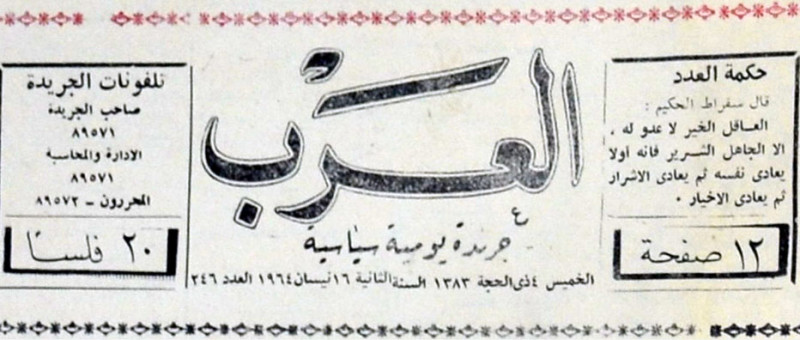 حكمة العدد
قال سقراط الحكيم :
العاقل الخير لا عدو له ،
الا الجاهل الشرير فانه اولا
يعادى نفسه ثم يعادى الاشرار
ثم يعادى الاخيار .
١٢ صفحة
العرب
جريدة يومية سياسية
الخميس ٤ ذى الحجة ١٣٨٣ السنة الثانية ١٦ نيسان ١٩٦٤ العدد ٢٤٦
تلفونات الجريدة
صاحب الجريدة
٨٩٥٧١
الادارة والمحاسبة
٨٩٥٧١
المحررون - ٨٩٥٧٢
٢٠ فلسًا